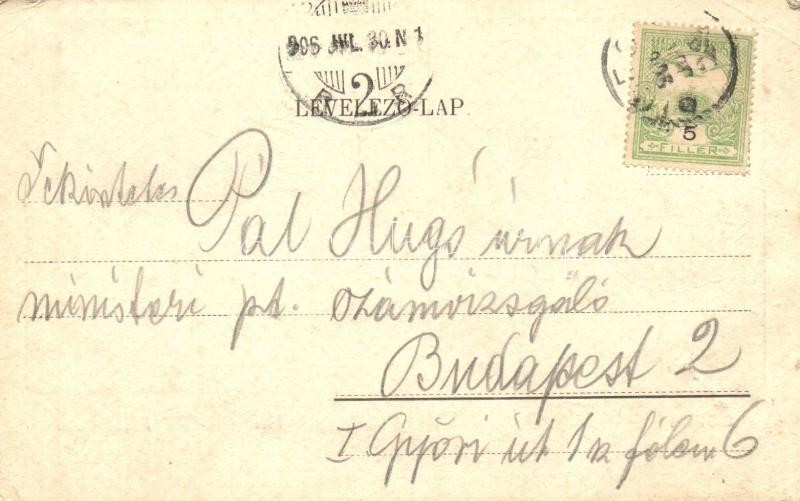 905 JUL. 30. N 1
2
LEVELEZŐ-LAP.
5
FILLER
Tekintetes Pál Hugó úrnak
ministeri pt. számvizsgáló
Budapest 2
I Győri út 1
6